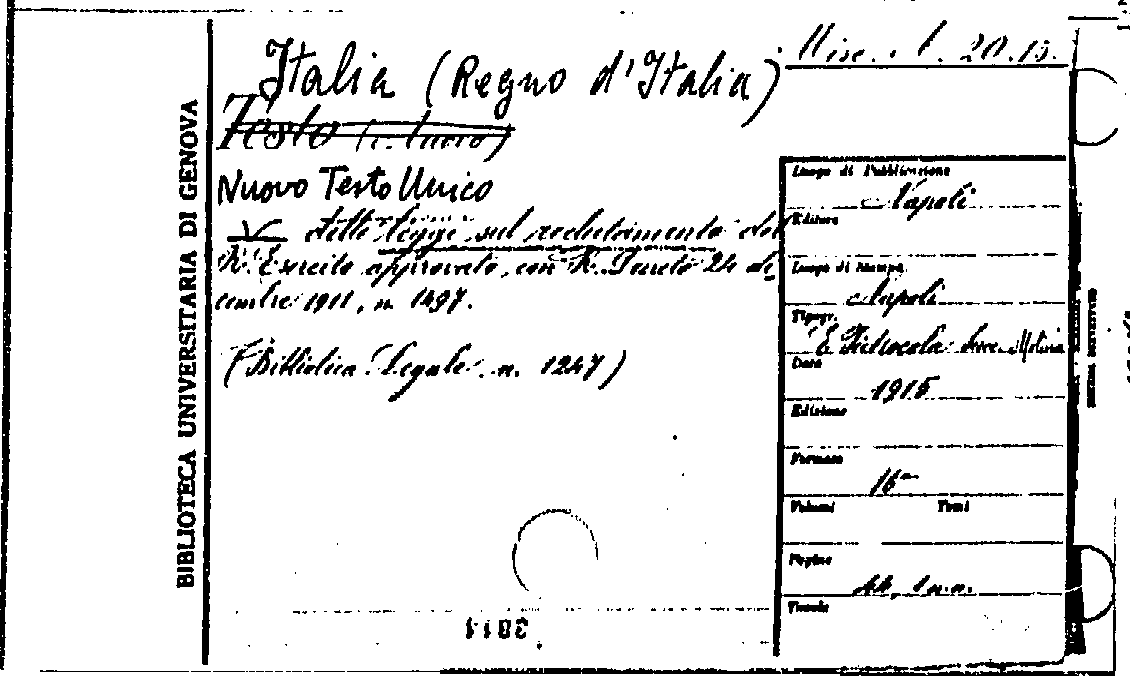 Misc. A. 20.15.
Italia (Regno d'Italia)
Testo
Nuovo Testo Unico
V delle leggi sul reclutamento del
R. Esercito approvato, con R. Decreto 24 di
cembre 1911, n. 1497.
(Biblioteca Legale. n. 1247)
BIBLIOTECA UNIVERSITARIA DI GENOVA
Luogo di Pubblicazione
Napoli
Editore
Luogo di Stampa
Napoli
Tipogr.
E. Pietrocola Succ. Molina
Data
1915
Edizione
Formato
16°
Volumi Tomi
Pagine
44, 1 n.n.
Tavole